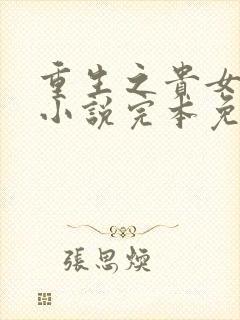 重生之貴女
小說完本免
張思煐